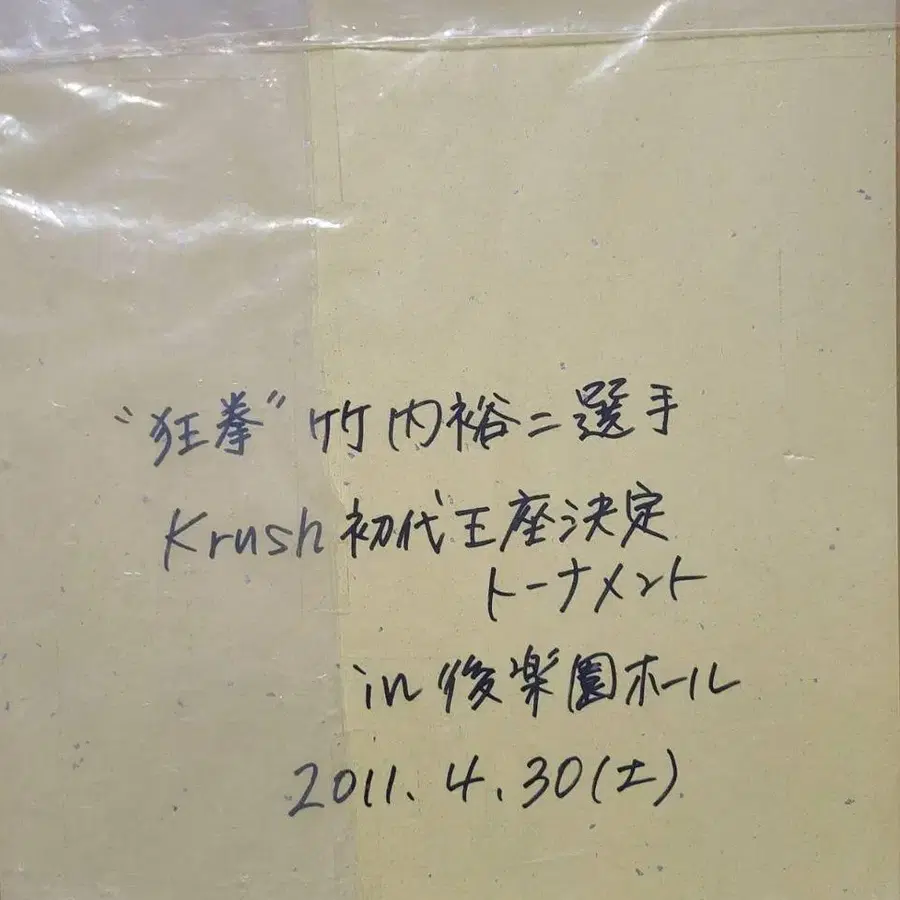 "狂拳" 竹内裕二選手
Krush初代王座決定
トーナメント
in 後楽園ホール
2011.4.30(土)